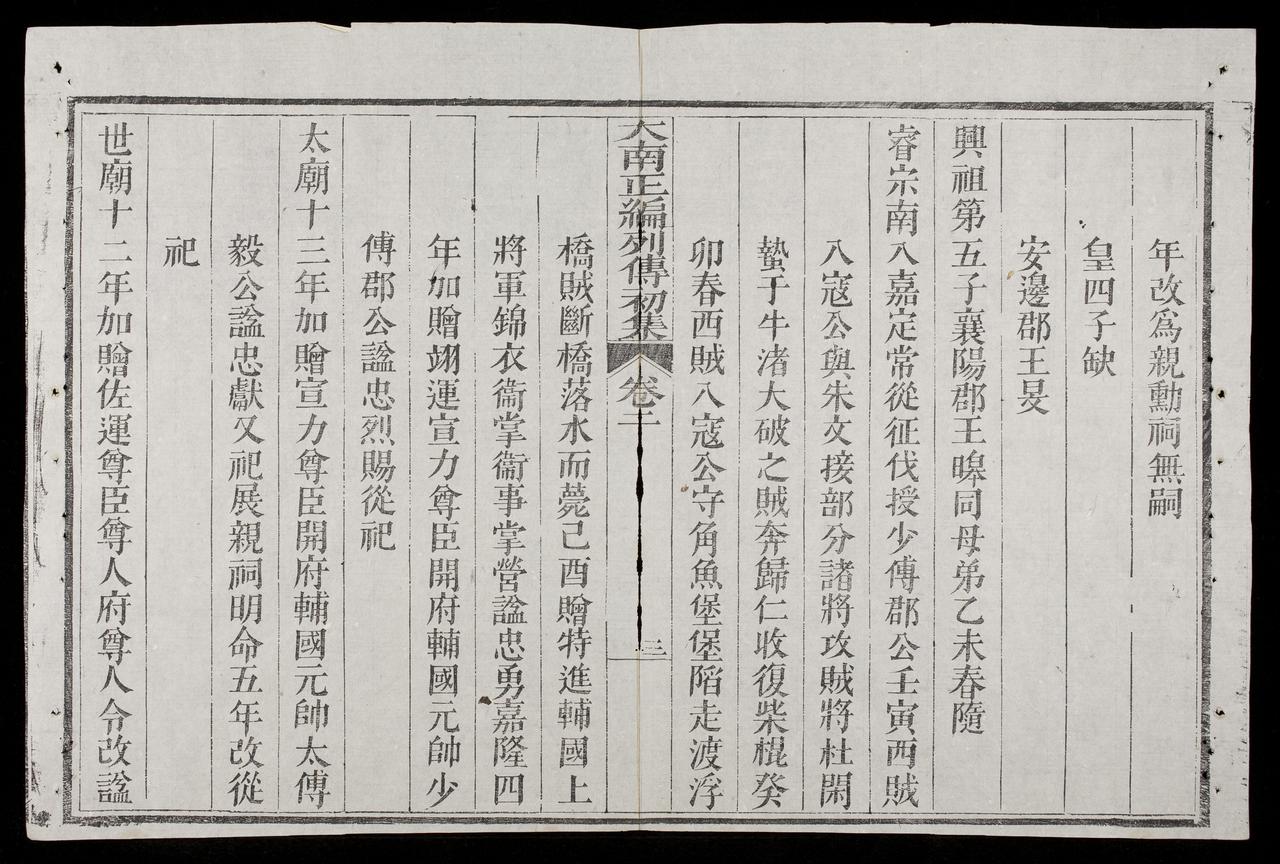 年改為親勳祠無嗣
皇四子缺
安邊郡王旻
興祖第五子襄陽郡王暭同母弟乙未春隨
睿宗南入嘉定常從征伐授少傅郡公壬寅西賊
入寇公與朱文接部分諸將攻賊將杜閑
蟄于牛渚大破之賊奔歸仁收復柴棍癸
卯春西賊入寇公守角魚堡堡陷走渡浮
大南正編列傳初集 卷二 三
橋賊斷橋落水而薨己酉贈特進輔國上
將軍錦衣衞掌衞事掌營謚忠勇嘉隆四
年加贈翊運宣力尊臣開府輔國元帥少
傅郡公謚忠烈賜從祀
太廟十三年加贈宣力尊臣開府輔國元帥太傅
毅公謚忠獻又祀展親祠明命五年改從
祀
世廟十二年加贈佐運尊臣尊人府尊人令改謚